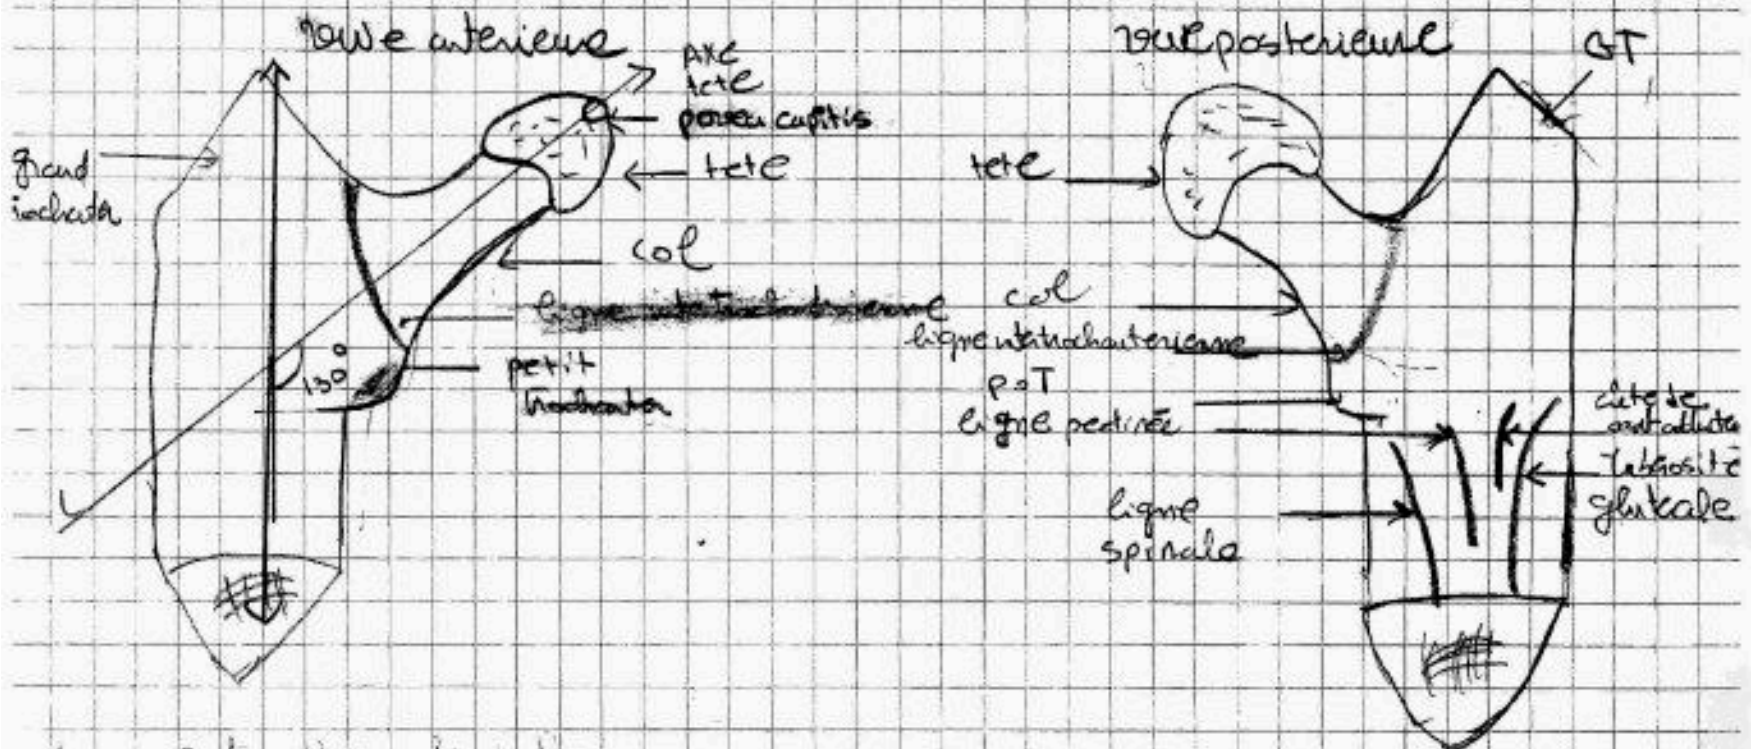 vue anterieure
AXE
tete
fovea capitis
tete
grand
trochanter
col
ligne intertrochanterienne
petit
trochanter
130°
vue posterieure
GT
tete
col
ligne intertrochanterienne
P.T
ligne pectinée
ligne
spinale
crête de
Tuberosité
gluteale